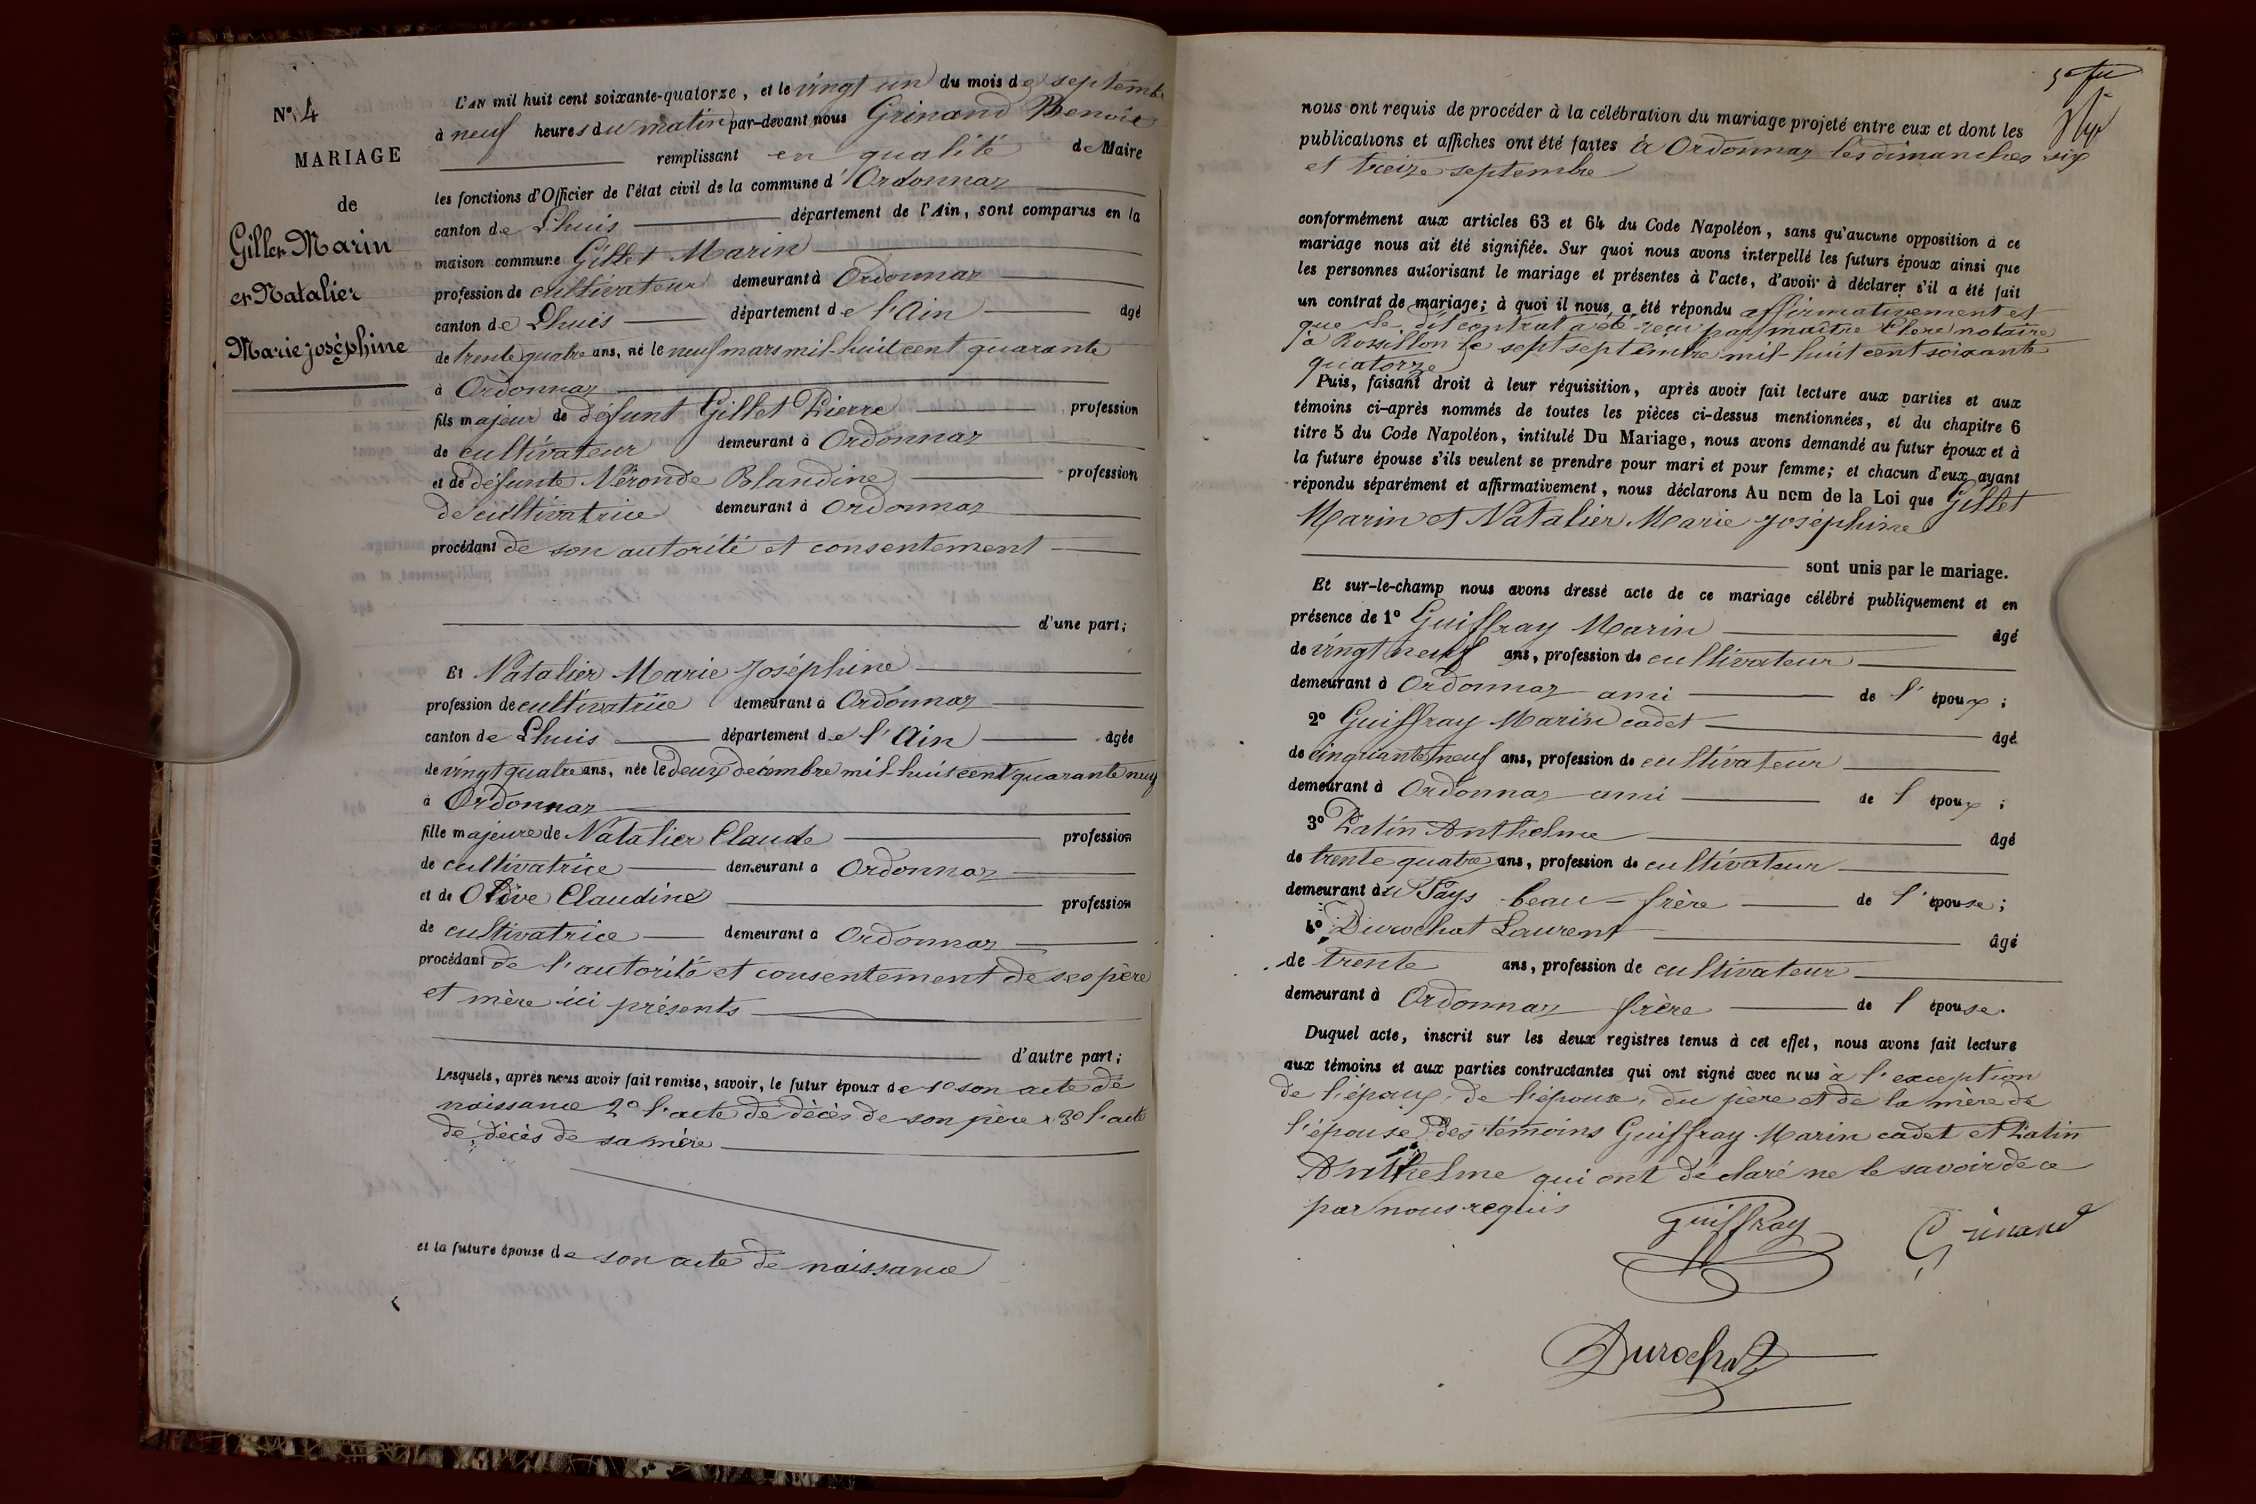 N° 4
MARIAGE
de
Gillet Marin
et Natalier
Marie joséphine
L'AN mil huit cent soixante-quatorze, et le vingt un du mois de septembre
à neuf heures du matin par-devant nous Grinand Benoît
remplissant en qualité de Maire
les fonctions d'Officier de l'état civil de la commune d'Ordonnaz
canton de Lhuis département de l'Ain, sont comparus en la
maison commune Gillet Marin
profession de cultivateur demeurant à Ordonnaz
canton de Lhuis département de l'Ain âgé
de trente quatre ans, né le neuf mars mil-huit cent quarante
à Ordonnaz
fils majeur de défunt Gillet Pierre profession
de cultivateur demeurant à Ordonnaz
et de défunte Néronde Blandine profession
de cultivatrice demeurant à Ordonnaz
procédant de son autorité et consentement
d'une part;
Et Natalier Marie Joséphine
profession de cultivatrice demeurant à Ordonnaz
canton de Lhuis département de l'Ain âgée
de vingt quatre ans, née le deux décembre mil-huit cent quarante neuf
à Ordonnaz
fille majeure de Natalier Claude profession
de cultivatrice demeurant à Ordonnaz
et de Claudine profession
de cultivatrice demeurant à Ordonnaz
procédant de l'autorité et consentement de ses père
et mère ici présents
d'autre part;
Lesquels, après nous avoir fait remise, savoir, le futur époux de 1° son acte de
naissance 2° l'acte de décès de son père 3° l'acte
de décès de sa mère
et la future épouse de son acte de naissance
nous ont requis de procéder à la célébration du mariage projeté entre eux et dont les
publications et affiches ont été faites à Ordonnaz les dimanches six
et treize septembre
conformément aux articles 63 et 64 du Code Napoléon, sans qu'aucune opposition à ce
mariage nous ait été signifiée. Sur quoi nous avons interpellé les futurs époux ainsi que
les personnes autorisant le mariage et présentes à l'acte, d'avoir à déclarer s'il a été fait
un contrat de mariage; à quoi il nous a été répondu affirmativement et
que le dit contrat a été reçu par maître notaire
à Rossillon le sept septembre mil-huit cent soixante
quatorze
Puis, faisant droit à leur réquisition, après avoir fait lecture aux parties et aux
témoins ci-après nommés de toutes les pièces ci-dessus mentionnées, et du chapitre 6
titre 5 du Code Napoléon, intitulé Du Mariage, nous avons demandé au futur époux et à
la future épouse s'ils veulent se prendre pour mari et pour femme; et chacun d'eux ayant
répondu séparément et affirmativement, nous déclarons Au nom de la Loi que Gillet
Marin et Natalier Marie joséphine
sont unis par le mariage.
Et sur-le-champ nous avons dressé acte de ce mariage célébré publiquement et en
présence de 1° Guiffray Marin âgé
de vingt neuf ans, profession de cultivateur
demeurant à Ordonnaz ami de l'époux;
2° Guiffray Marin cadet âgé
de cinquante neuf ans, profession de cultivateur
demeurant à Ordonnaz ami de l'époux;
3° Patin Anthelme âgé
de trente quatre ans, profession de cultivateur
demeurant du Pays beau-frère de l'épouse;
4° Durochat Laurent âgé
de trente ans, profession de cultivateur
demeurant à Ordonnaz frère de l'épouse.
Duquel acte, inscrit sur les deux registres tenus à cet effet, nous avons fait lecture
aux témoins et aux parties contractantes qui ont signé avec nous à l'exception
de l'époux, de l'épouse, du père et de la mère de
l'épouse des témoins Guiffray Marin cadet et Patin
Anthelme qui ont déclaré ne le savoir de ce
par nous requis
Guiffray
Grinand
Durochat